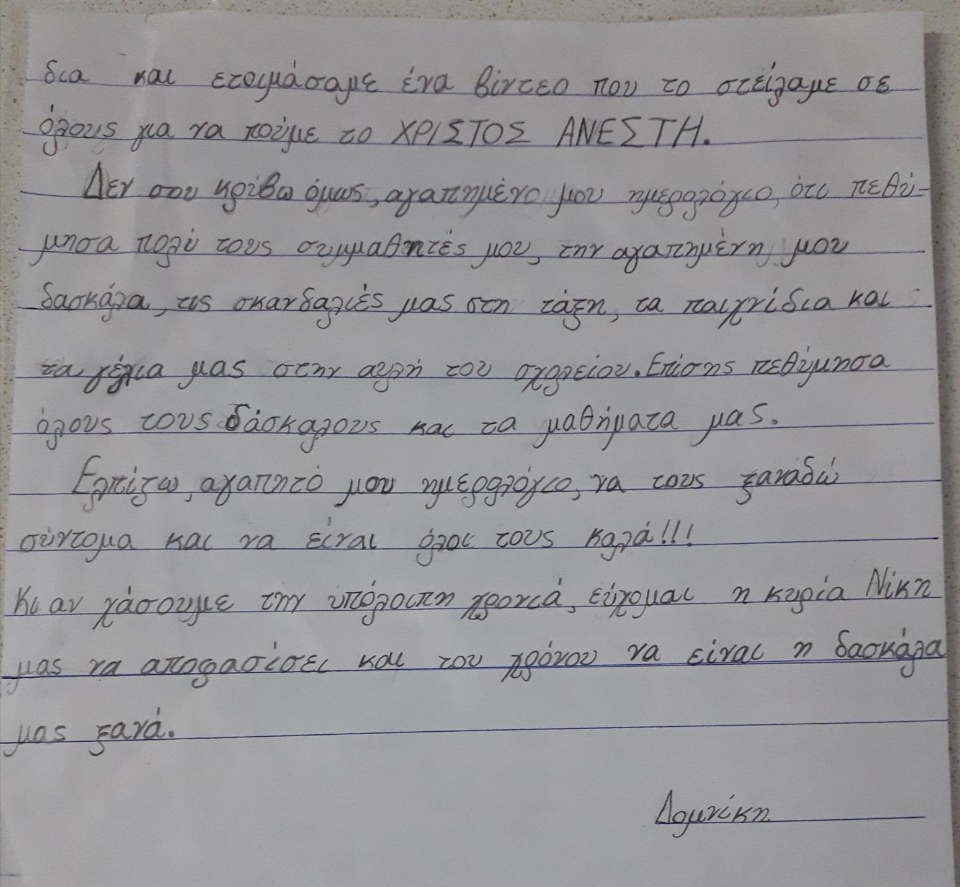 δια και ετοιμάσαμε ένα βίντεο που το στείλαμε σε
όλους για να πούμε το ΧΡΙΣΤΟΣ ΑΝΕΣΤΗ.
Δεν σου κρύβω όμως, αγαπημένο μου ημερολόγιο, ότι πεθύ-
μησα πολύ τους συμμαθητές μου, την αγαπημένη μου
δασκάλα, τις σκανδαλιές μας στη τάξη, τα παιχνίδια και
τα γέλια μας στην αυλή του σχολείου. Επίσης πεθύμησα
όλους τους δάσκαλους και τα μαθήματα μας.
Ελπίζω, αγαπητό μου ημερολόγιο, να τους ξαναδώ
σύντομα και να είναι όλοι τους καλά!!!
Κι αν χάσουμε την υπόλοιπη χρονιά, εύχομαι η κυρία Νίκη
μας να αποφασίσει και του χρόνου να είναι η δασκάλα
μας ξανά.
Δομνίκη